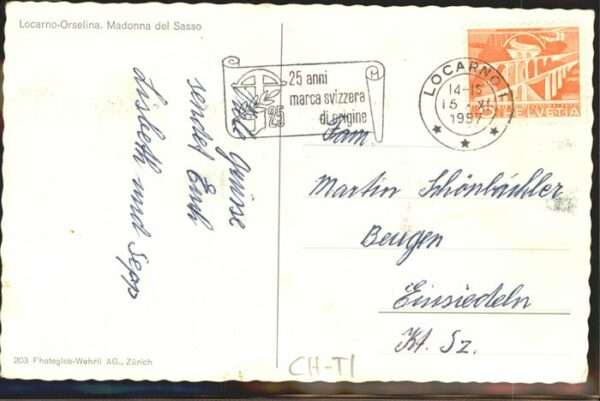 Locarno-Orselina. Madonna del Sasso
25 anni
marca svizzera
di origine
LOCARNO 1
14-15
15. XI.
1957
HELVETIA
Grüsse
sendet Euch
Lisbeth und Sepp
Fam.
Martin Schönbächler
Beugen
Einsiedeln
Kt. Sz.
203 Photoglob-Wehrli AG., Zürich
CH-TI